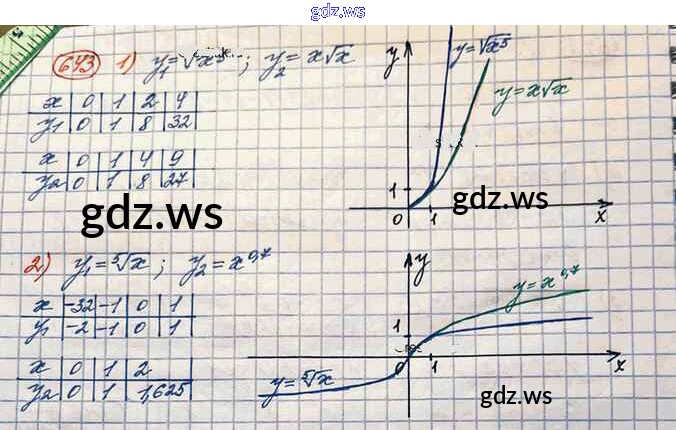 gdz.ws
643 1) y₁ = √x⁵ ; y₂ = x√x
x 0 1 2 4
y₁ 0 1 8 32
x 0 1 4 9
y₂ 0 1 8 27
y y=√x⁵
y=x√x
1
0 1 x
gdz.ws gdz.ws
2) y₁ = ⁵√x ; y₂ = x^0,7
x -32 -1 0 1
y₁ -2 -1 0 1
x 0 1 2
y₂ 0 1 1,625
y
y=x^0,7
1
0 1 x
y=⁵√x
gdz.ws